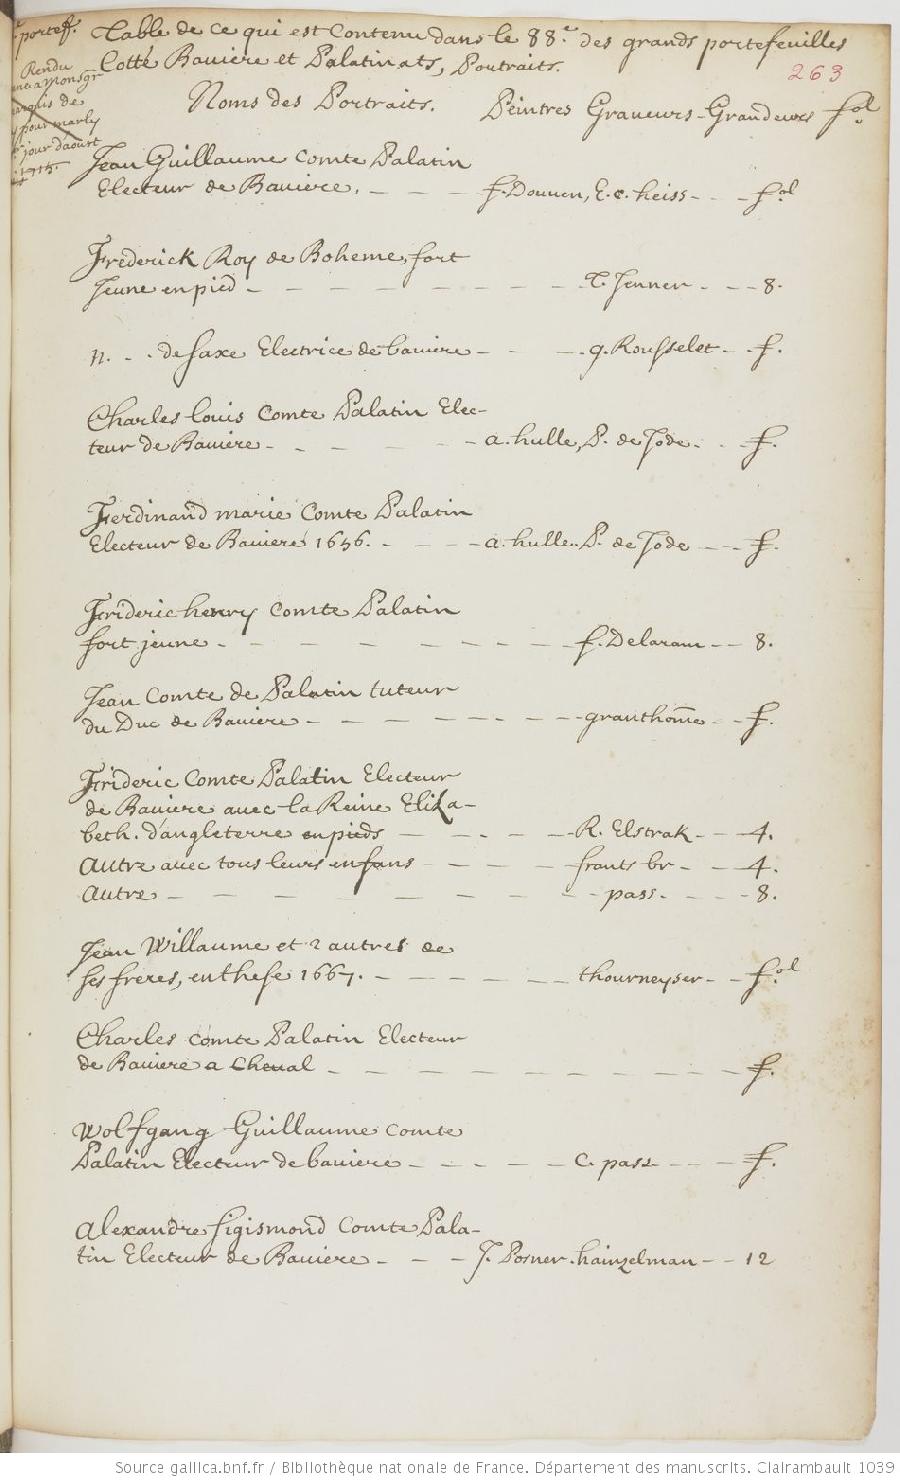 portef.
Table de ce qui est Contenu dans le 88.e des grands portefeuilles
Cotté Baviere et Palatinats, Poutraits.
263
Rendu
a Monsgr
de
pour marly
jour daoust
1715.
Noms des Portraits. Peintres Graveurs - Grandeurs fol.
Jean Guillaume Comte Palatin
Electeur de Baviere. - - - f. Douven, E. c. heiss - - - fol.
Frederick Roy de Boheme, fort
Jeune en pied - - - - - - - - T. Jenner - - - 8.
n. - . de Saxe Electrice de baviere - - - . g. Rousselet - - f.
Charles Louis Comte Palatin Elec-
teur de Baviere - - - - - - - a. hulle, P. de Jode - - f.
Ferdinand marie Comte Palatin
Electeur de Baviere 1656. - - - - a. hulle. P. de Jode - - - f.
Frideric henry Comte Palatin
fort jeune - - - - - - - - - f. Delaram - - 8.
Jean Comte de Palatin tuteur
du Duc de Baviere - - - - - - - - granthom̄e - - f.
Frideric Comte Palatin Electeur
de Baviere avec la Reine Eliza-
beth. d'angleterre en pieds - - - - - R. Elstrak - - 4.
Autre avec tous leurs enfans - - - - frants br - - 4.
Autre - - - - - - - - - - pass. - - - 8.
Jean Willaume et 2 autres de
ses freres, en these 1667. - - - - - - thourneyser - - fol.
Charles comte Palatin Electeur
de Baviere a Cheval - - - - - - - - - - - f.
Wolfgang Guillaume Comte
Palatin Electeur de baviere - - - - - c. pass - - - f.
Alexandre Sigismond Comte Pala-
tin Electeur de Baviere - - - J. Posner. hainzelman - - 12
Source gallica.bnf.fr / Bibliothèque nationale de France. Département des manuscrits. Clairambault 1039